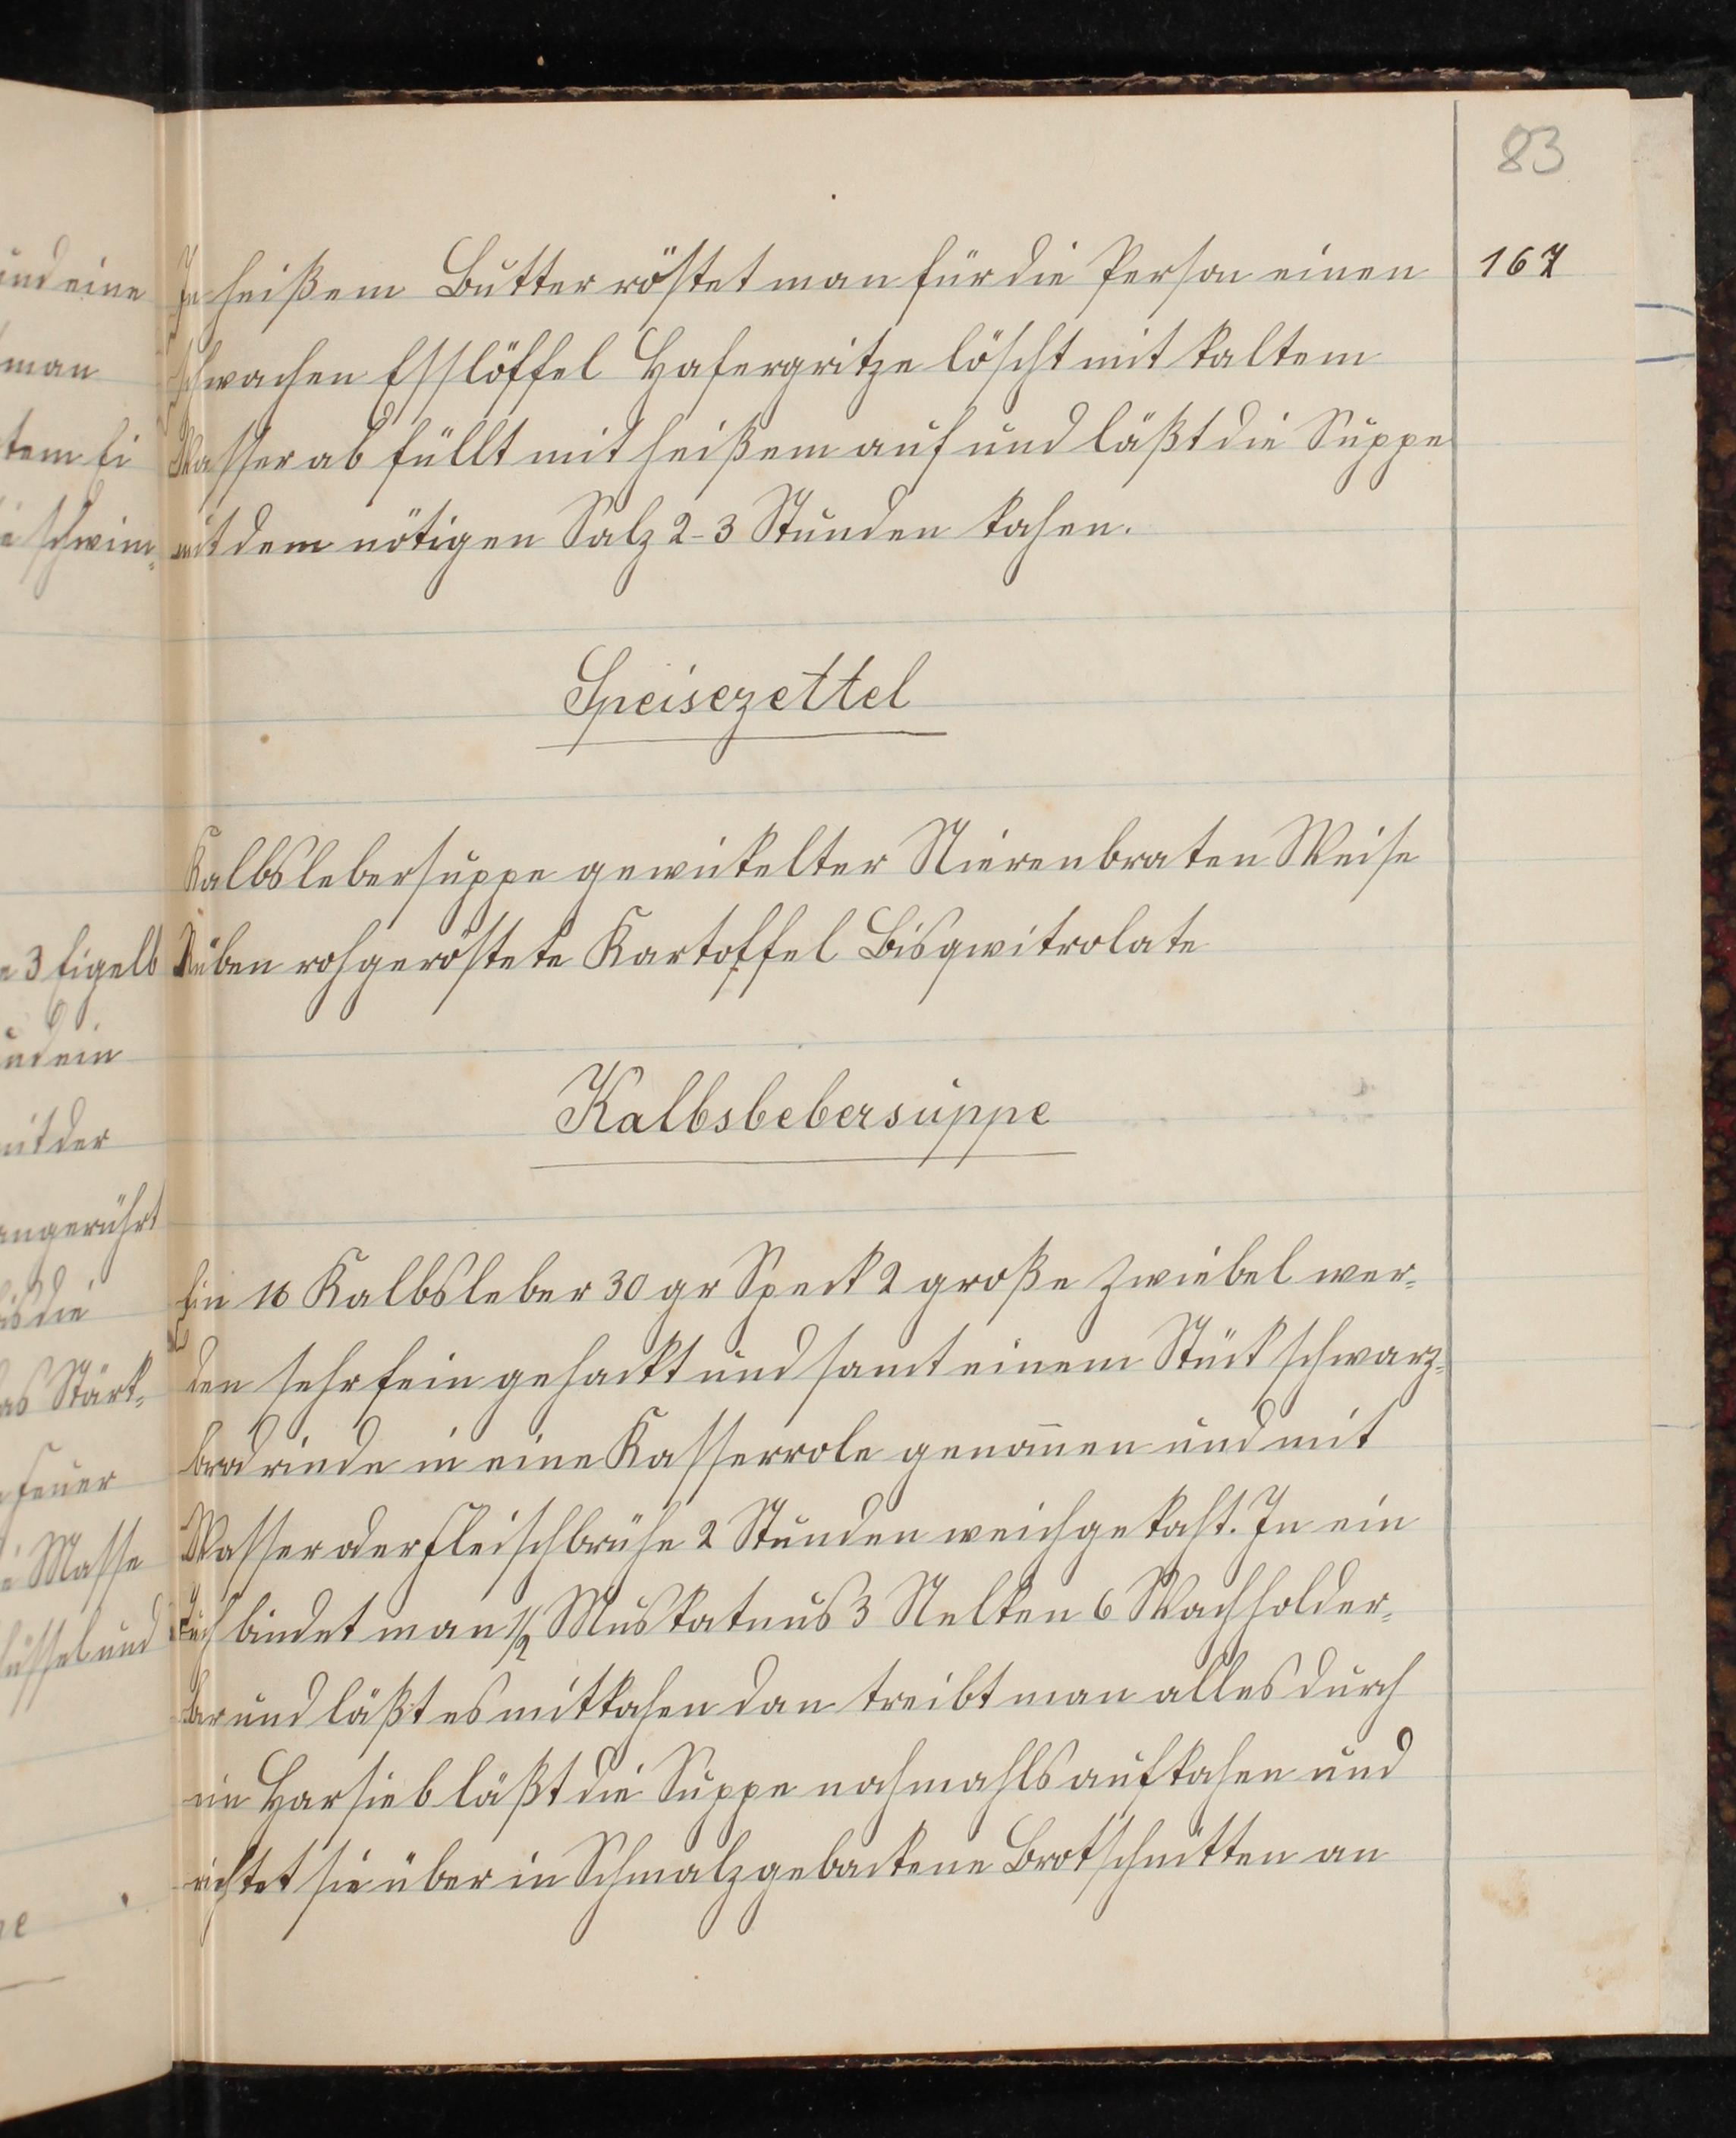 83
167
In heißem Butter röstet man für die Person einen
schwachen Esslöffel Hafergritze löscht mit kaltem
Wasser ab füllt mit heißem auf und läßt die Suppe
mit dem nötigen Salz 2-3 Stunden kochen.
Speisezettel
Kalbslebersuppe gewickelter Nierenbraten Weise
Rüben rohgeröstete Kartoffel Bisqwitrolate
Kalbsbebersuppe
Ein ℔ Kalbsleber 30 gr Speck 2 große Zwiebel wer-
den sehr fein gehackt und samt einem Stück schwarz-
brod rinde in eine Kasserrole genom̄en und mit
Wasser oder Fleischbrühe 2 Stunden weichgekocht. In ein
Tuch bindet man 1/2 Muskatnus 3 Nelken 6 Wachholder-
ber und läßt es mitkochen dan treibt man alles durch
ein Harsieb läßt die Suppe nochmahls aufkochen und
richtet sie über in Schmalz gebackene Brotschnitten an
und eine
man
tem Ei
schwim-
3 Eigelb
und ein
mit der
angerührt
bis die
das Stärk-
Feuer
Masse
und